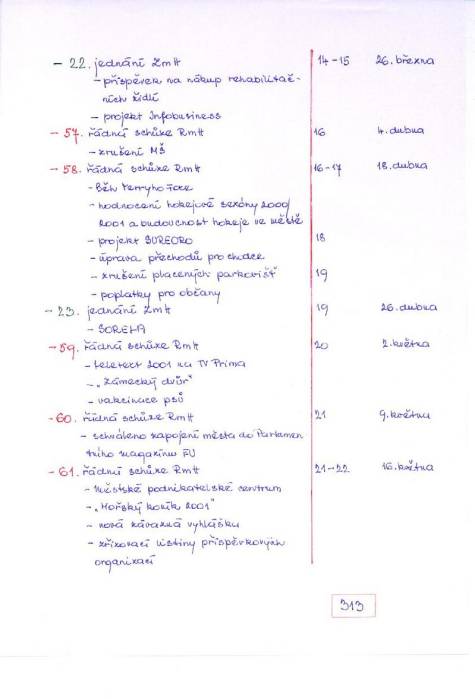 - 22. jednání ZmH 14-15 26. března
- příspěvek na nákup rehabilitač-
ních židlí
- projekt Infobusiness
- 57. řádná schůze RmH 16 4. dubna
- zrušení MŠ
- 58. řádná schůze RmH 16-17 18. dubna
- Běh Terryho Foxe
- hodnocení hokejové sezóny 2000/
2001 a budoucnost hokeje ve městě
- projekt SUREURO 18
- úprava přechodů pro chodce
- zrušení placených parkovišť 19
- poplatky pro občany
- 23. jednání ZmH 19 26. dubna
- SOREHA
- 59. řádná schůze RmH 20 2. května
- teletext 2001 na TV Prima
- "Zámecký dvůr"
- vakcinace psů
- 60. řádná schůze RmH 21 9. května
- schváleno zapojení města do Parlamen
tního magazínu EU
- 61. řádná schůze RmH 21-22 16. května
- Městské podnikatelské centrum
- "Mořský koník 2001"
- nová závazná vyhláška
- zřizovací listiny příspěvkových
organizací
313